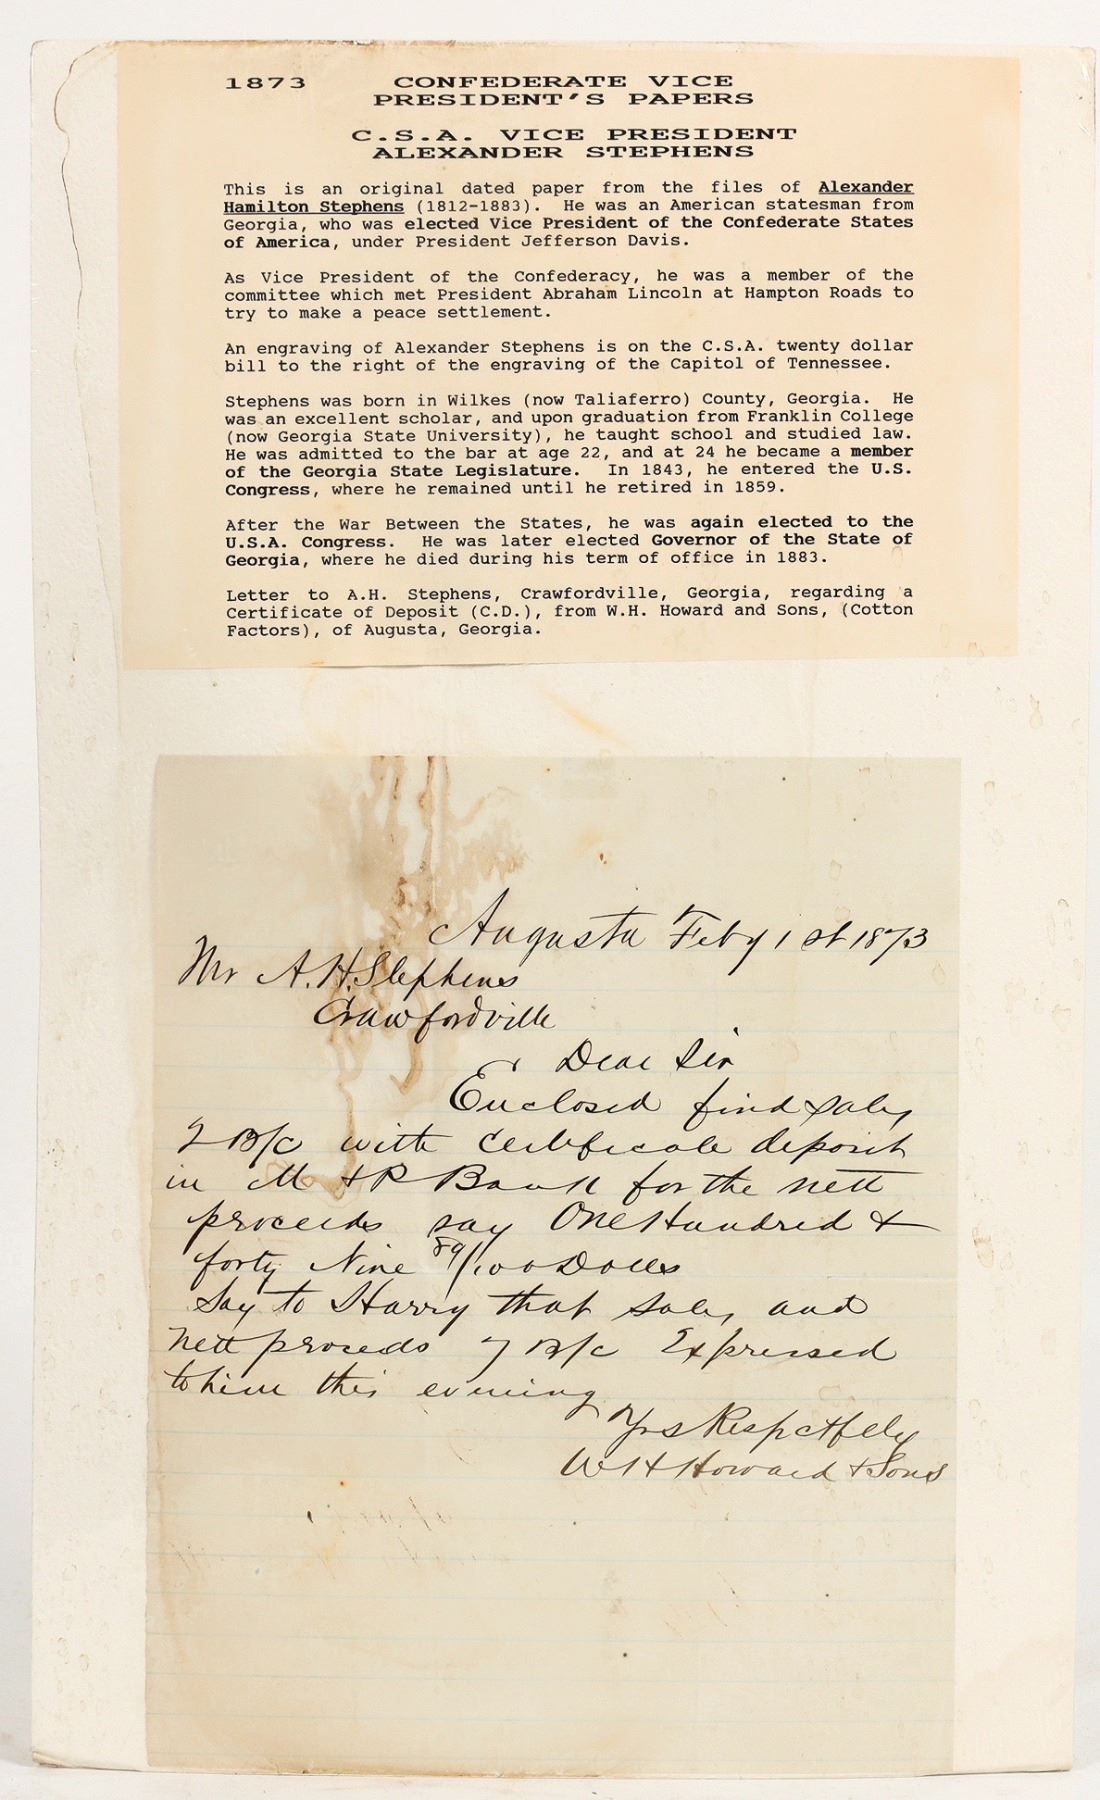 1873 CONFEDERATE VICE
PRESIDENT'S PAPERS
C.S.A. VICE PRESIDENT
ALEXANDER STEPHENS
This is an original dated paper from the files of Alexander
Hamilton Stephens (1812-1883). He was an American statesman from
Georgia, who was elected Vice President of the Confederate States
of America, under President Jefferson Davis.
As Vice President of the Confederacy, he was a member of the
committee which met President Abraham Lincoln at Hampton Roads to
try to make a peace settlement.
An engraving of Alexander Stephens is on the C.S.A. twenty dollar
bill to the right of the engraving of the Capitol of Tennessee.
Stephens was born in Wilkes (now Taliaferro) County, Georgia. He
was an excellent scholar, and upon graduation from Franklin College
(now Georgia State University), he taught school and studied law.
He was admitted to the bar at age 22, and at 24 he became a member
of the Georgia State Legislature. In 1843, he entered the U.S.
Congress, where he remained until he retired in 1859.
After the War Between the States, he was again elected to the
U.S.A. Congress. He was later elected Governor of the State of
Georgia, where he died during his term of office in 1883.
Letter to A.H. Stephens, Crawfordville, Georgia, regarding a
Certificate of Deposit (C.D.), from W.H. Howard and Sons, (Cotton
Factors), of Augusta, Georgia.
Augusta Feby 1st 1873
Mr A.H. Stephens
Crawfordville
Dear Sir
Enclosed find sales
2 B/C with Certificate deposit
in M & P Bank for the nett
proceeds say One Hundred &
forty Nine 89/100 Dolls
Say to Harry that sales and
nett proceeds 7 B/C Expressed
to him this evening
Yrs Respectfely
W H Howard & Sons